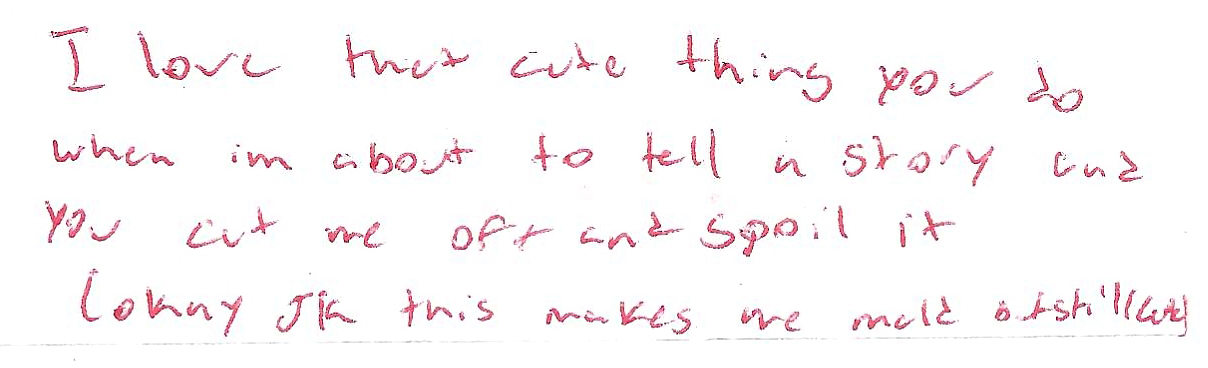 I love that cute thing you do
when im about to tell a story and
you cut me off and spoil it
(okay jk this makes me mad but still cute)